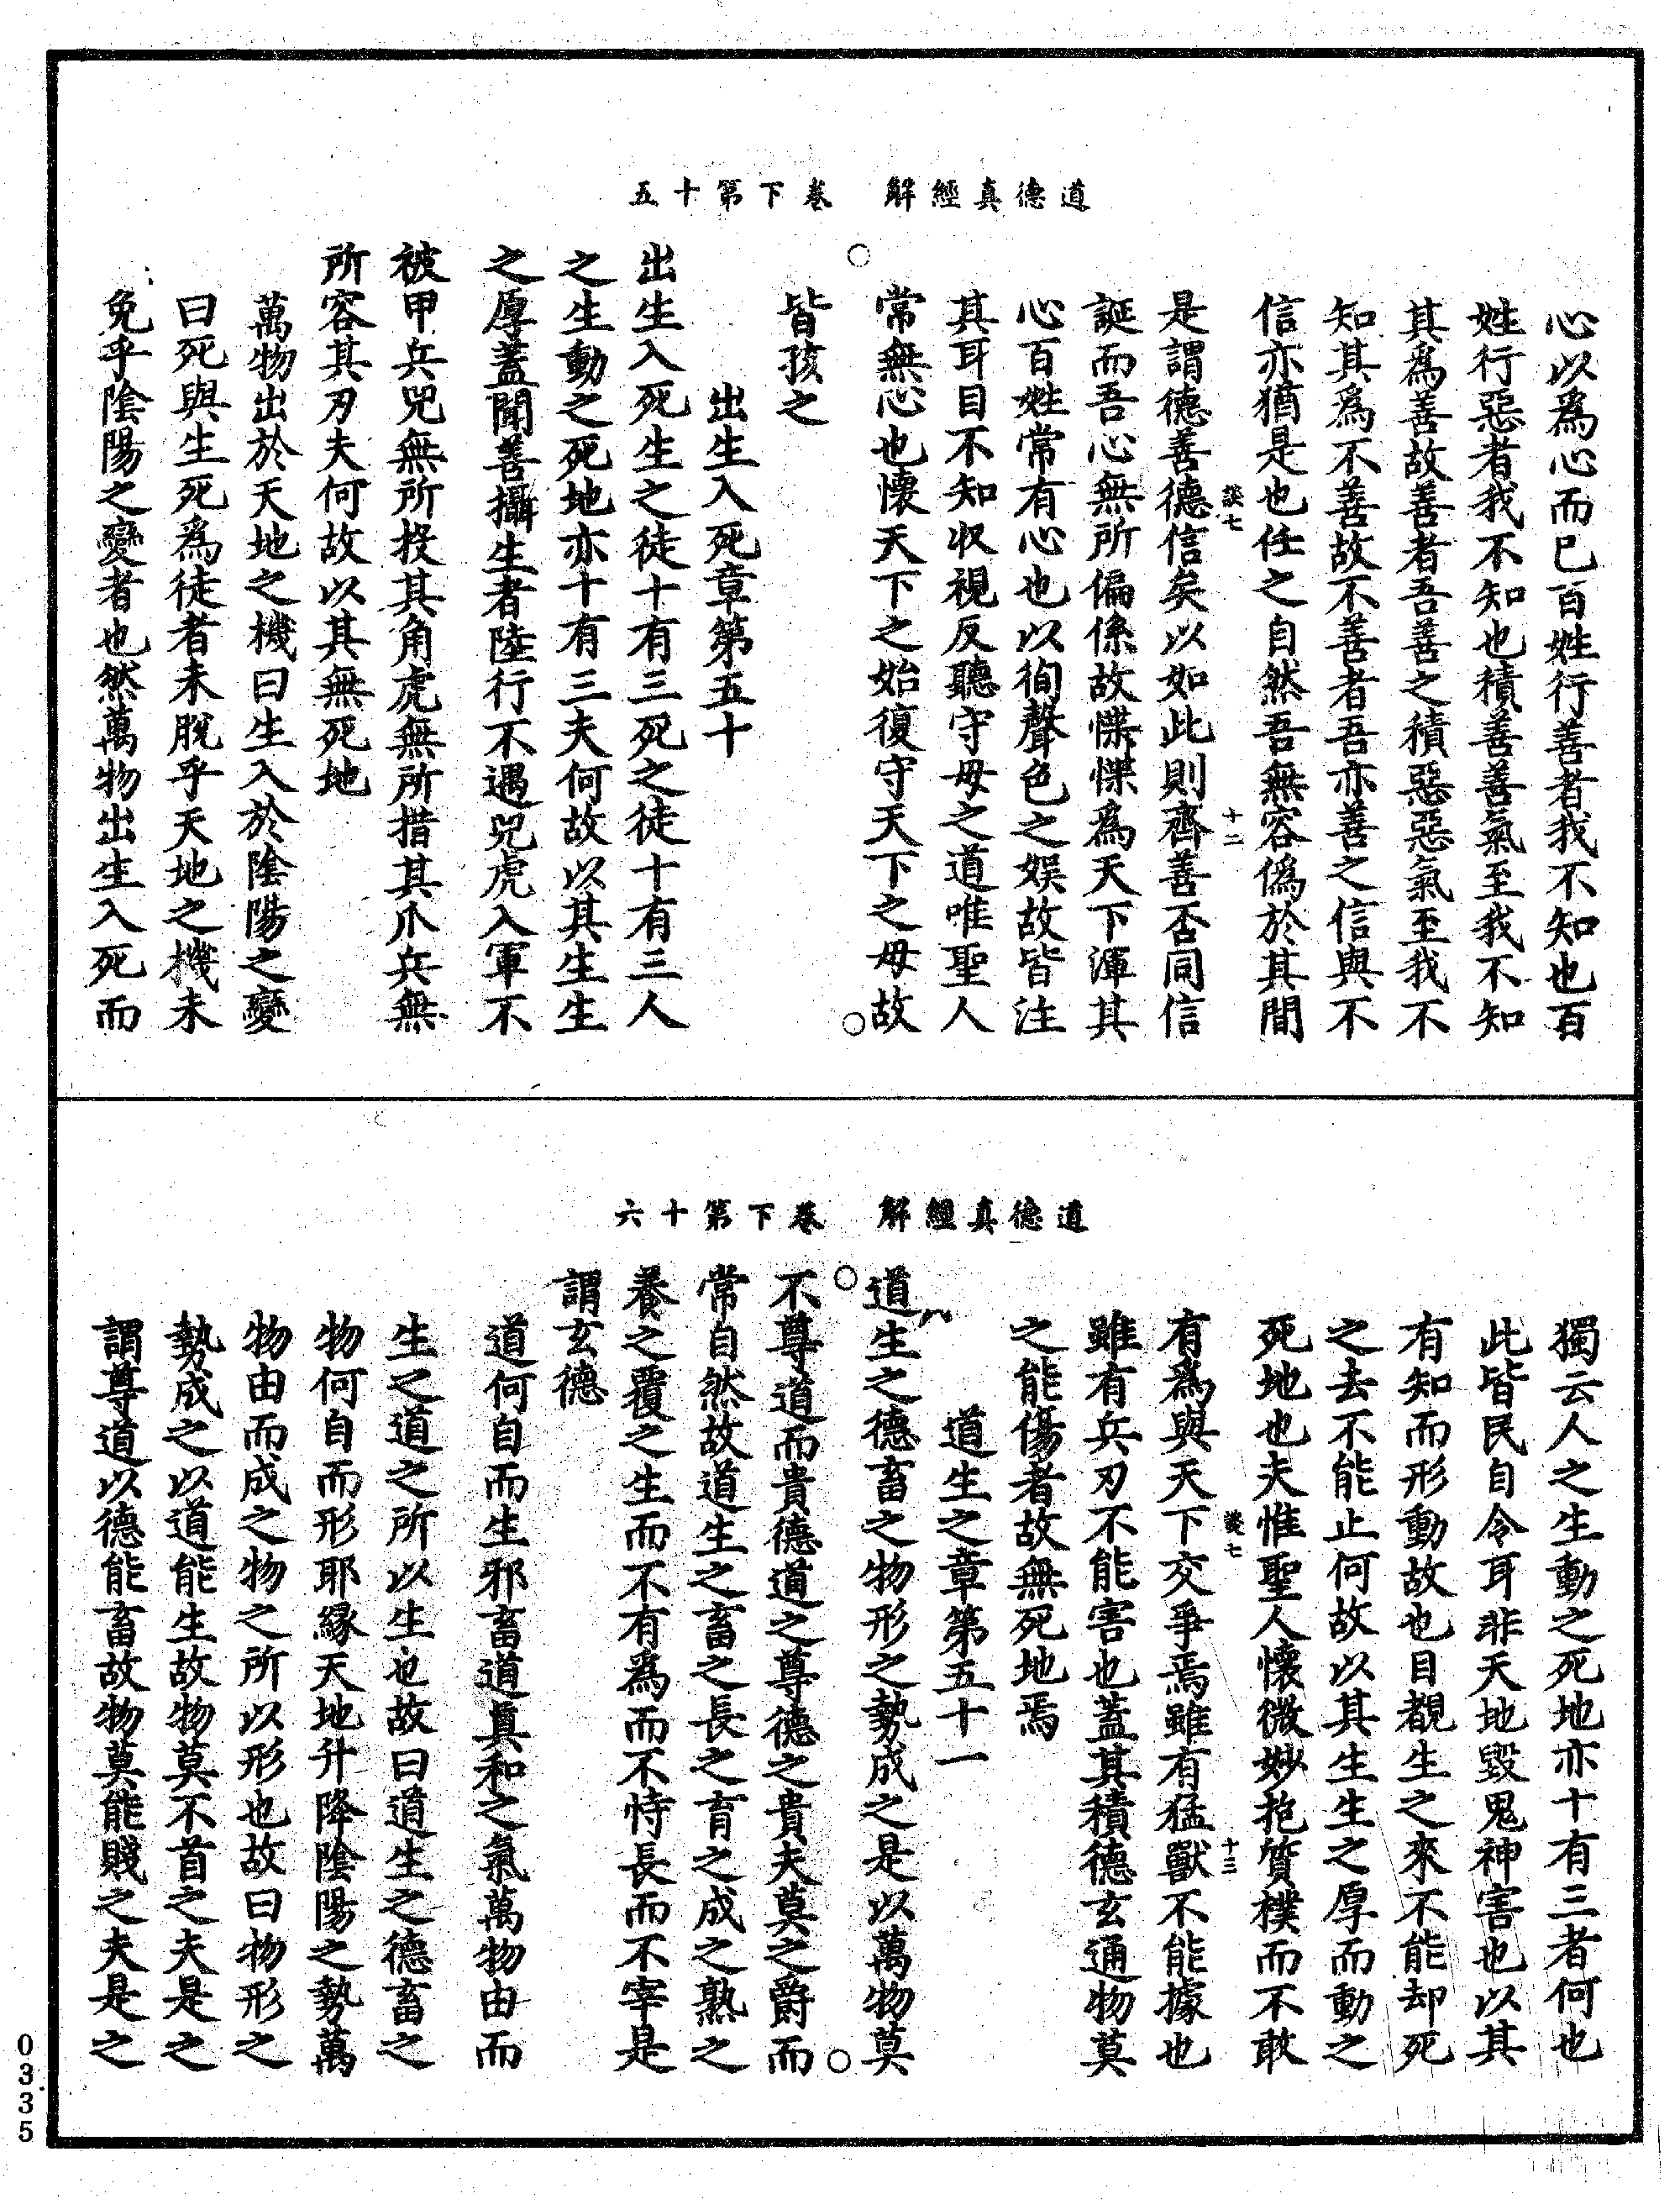 道德真經解　卷下第十五
心以爲心而已百姓行善者我不知也百
姓行惡者我不知也積善善氣至我不知
其爲善故善者吾善之積惡惡氣至我不
知其爲不善故不善者吾亦善之信與不
信亦猶是也任之自然吾無容僞於其間
談七
十二
是謂德善德信矣以如此則齊善否同信
誕而吾心無所偏係故慄慄爲天下渾其
心百姓常有心也以徇聲色之娛故皆注
其耳目不知収視反聽守母之道唯聖人
常無心也懷天下之始復守天下之母故
皆孩之
出生入死章第五十
出生入死生之徒十有三死之徒十有三人
之生動之死地亦十有三夫何故以其生生
之厚蓋聞善攝生者陸行不遇兕虎入軍不
被甲兵兕無所投其角虎無所措其爪兵無
所容其刃夫何故以其無死地
萬物出於天地之機曰生入於陰陽之變
曰死與生死爲徒者未脫乎天地之機未
免乎陰陽之變者也然萬物出生入死而
道德真經解　卷下第十六
獨云人之生動之死地亦十有三者何也
此皆民自令耳非天地毀鬼神害也以其
有知而形動故也目覩生之來不能却死
之去不能止何故以其生生之厚而動之
死地也夫惟聖人懷微妙抱質樸而不敢
談七
十三
有爲與天下交爭焉雖有猛獸不能據也
雖有兵刃不能害也蓋其積德玄通物莫
之能傷者故無死地焉
道生之章第五十一
道生之德畜之物形之勢成之是以萬物莫
不尊道而貴德道之尊德之貴夫莫之爵而
常自然故道生之畜之長之育之成之熟之
養之覆之生而不有爲而不恃長而不宰是
謂玄德
道何自而生邪畜道真和之氣萬物由而
生之道之所以生也故曰道生之德畜之
物何自而形耶緣天地升降陰陽之勢萬
物由而成之物之所以形也故曰物形之
勢成之以道能生故物莫不首之夫是之
謂尊道以德能畜故物莫能賤之夫是之
0335